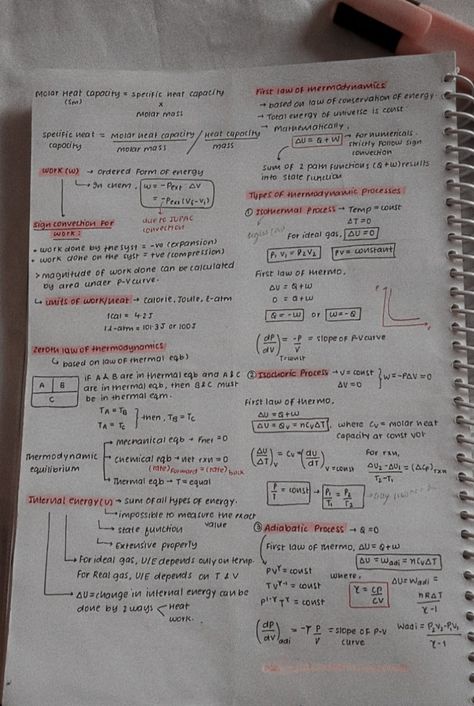 Molar Heat Capacity = specific heat capacity
(sm)
x
Molar mass
specific heat = Molar heat capacity / Heat capacity
capacity molar mass mass
Work (W) → ordered form of energy
In chem, w = -Pext · ΔV
= -Pext (Vf - Vi)
due to IUPAC
convection
Sign convection for
work:
• work done by the syst = -ve (expansion)
• work done on the syst = +ve (compression)
> magnitude of work done can be calculated
by area under P-V curve.
↳ units of work/heat → calorie, Joule, l-atm
1 cal = 4.2 J
1 l-atm = 101.3 J or 100 J
Zeroth law of thermodynamics
↳ based on law of thermal eqb)
A B
C
if A & B are in thermal eqb and A & C
are in thermal eqb, then B & C must
be in thermal eqm.
TA = TB
TA = TC
} then, TB = TC
Thermodynamic
equilibrium
Mechanical eqb → Fnet = 0
Chemical eqb → net rxn = 0
(rate)forward = (rate)back
Thermal eqb → T = equal
Internal energy (U) → sum of all types of energy.
→ impossible to measure the exact
value
→ state function
→ Extensive property
→ For ideal gas, U/E depends only on temp.
For Real gas, U/E depends on T & V
→ ΔU = change in internal energy can be
done by 2 ways < Heat
work.
First law of thermodynamics
→ based on law of conservation of energy.
→ Total energy of universe is const.
→ Mathematically,
ΔU = Q + W → for numericals.
strictly follow sign
convection
sum of 2 path functions (Q+W) results
into state function
Types of thermodynamic processes
① Isothermal Process → Temp = const
ΔT = 0
For ideal gas, ΔU = 0
P1V1 = P2V2 PV = constant
First law of thermo.
ΔU = Q + W
0 = Q + W
Q = -W or W = -Q
P
V
(dP/dV)T const = -P/V = slope of P-V curve
② Isochoric Process → V = const
ΔV = 0
} W = -PΔV = 0
First law of thermo,
ΔU = Q + W
ΔU = QV = nCVΔT, where CV = molar heat
capacity at const vol
(ΔU/ΔT)V = CV = (dU/dT)V = const
For rxn,
ΔU2 - ΔU1 / T2 - T1 = (ΔCV)rxn
P/T = const → P1/T1 = P2/T2
③ Adiabatic Process → Q = 0
First law of thermo, ΔU = Q + W
ΔU = Wadi = nCVΔT
PVγ = const
TVγ-1 = const
P1-γTγ = const
where,
γ = CP/CV
ΔU = Wadi = nRΔT/γ-1
(dP/dV)adi = -γ P/V = slope of P-V
curve
Wadi = P2V2 - P1V1 / γ-1